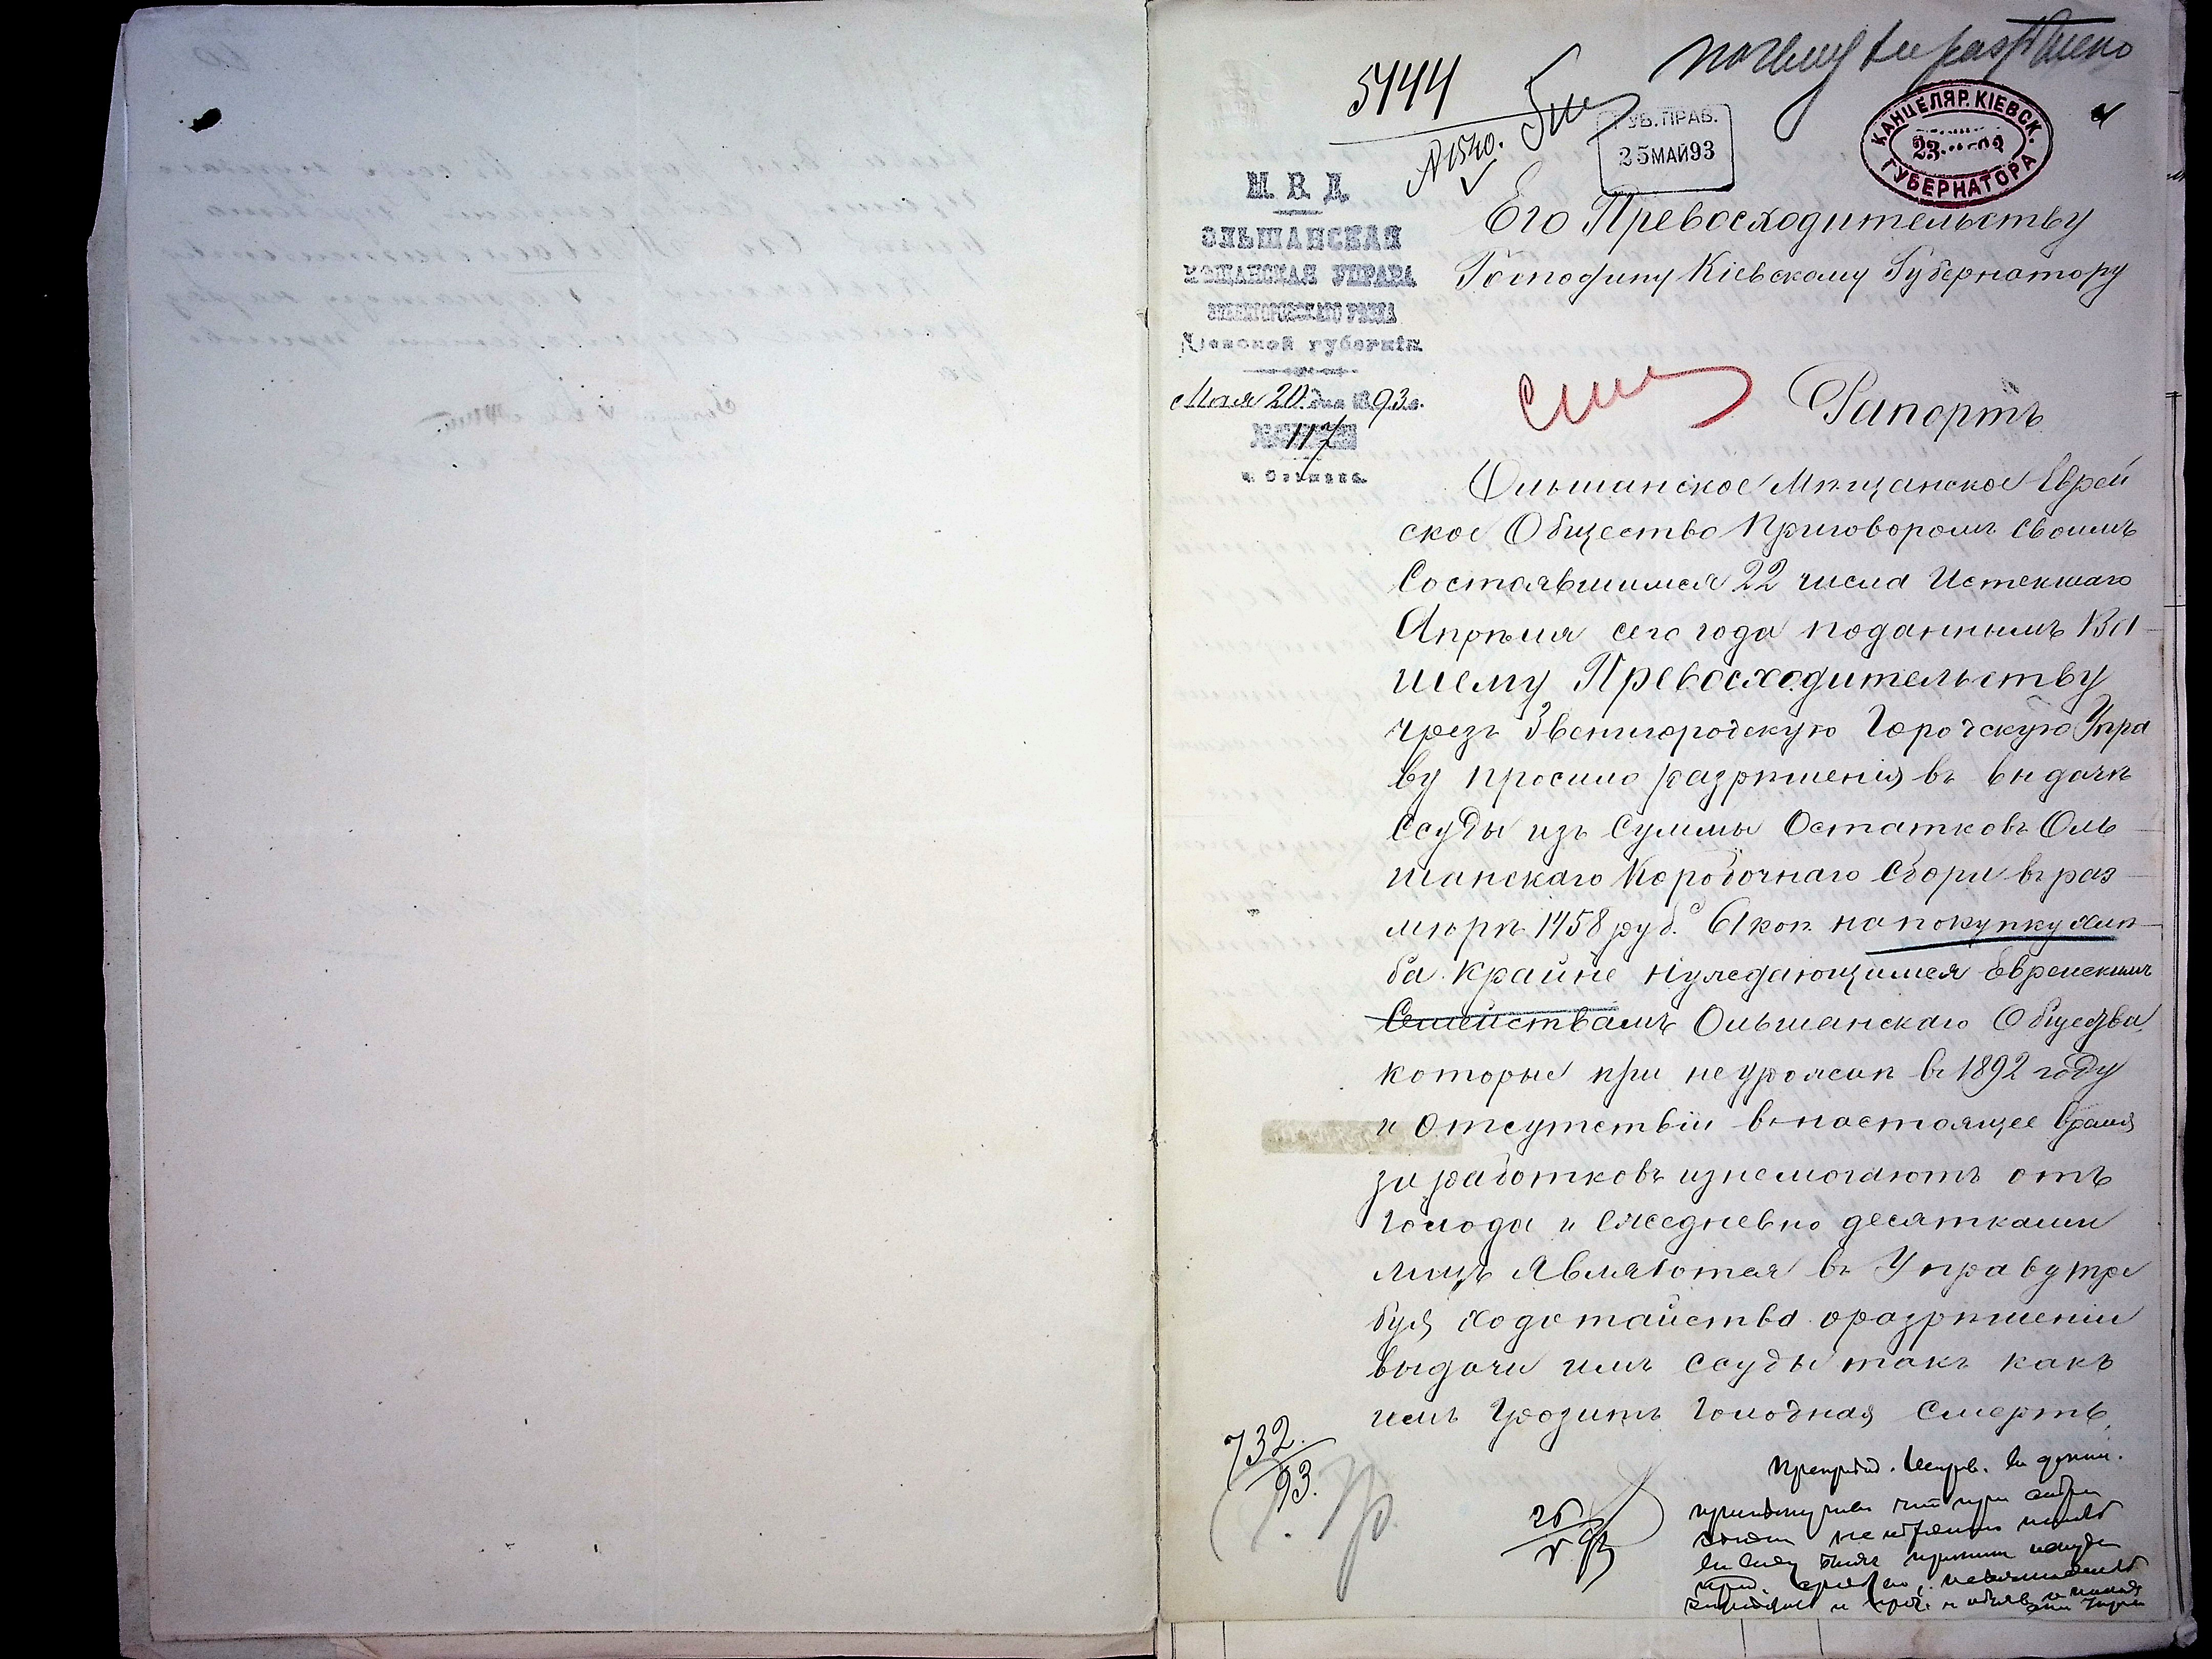 5444
№ 1540.
ГУБ. ПРАВ.
25 МАЙ 93
КАНЦЕЛЯР. КІЕВСК.
ГУБЕРНАТОРА
М. В. Д.
ОЛЬШАНСКАЯ
МѢЩАНСКАЯ УПРАВА
ЗВЕНИГОРОДСКАГО УѢЗДА
Кіевской губерніи
Мая 20 дня 1893 г.
№ 117
м. Ольшана.
Его Превосходительству
Господину Кіевскому Губернатору
Рапортъ
Ольшанское Мѣщанское Еврей
ское Общество Приговоромъ своимъ
Состоявшимся 22 числа Истекшаго
Апрѣля сего года поданнымъ Ва-
шему Превосходительству
чрезъ Звенигородскую Городскую Упра
ву просило разрѣшенія въ выдачѣ
Ссуды изъ Суммы Остатковъ Оль-
шанскаго Коробочнаго Сбора въ раз-
мѣрѣ 1458 руб. 61 коп. на покупку хлѣ-
ба крайне нуждающимся Еврейскимъ
Семействамъ Ольшанскаго Общества,
которые при неурожаѣ въ 1892 году
и Отсутствіи въ настоящее время
заработковъ изнемогаютъ отъ
голода и Ежедневно десятками
лицъ Являются въ Управу тре
буя ходотайства о разрѣшеніи
выдачи имъ ссуды такъ какъ
имъ Грозитъ Голодная Смерть,
732.
93.